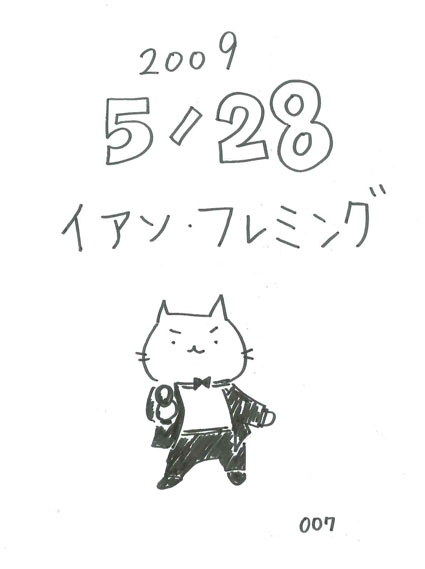 2009
5/28
イアン・フレミング
007